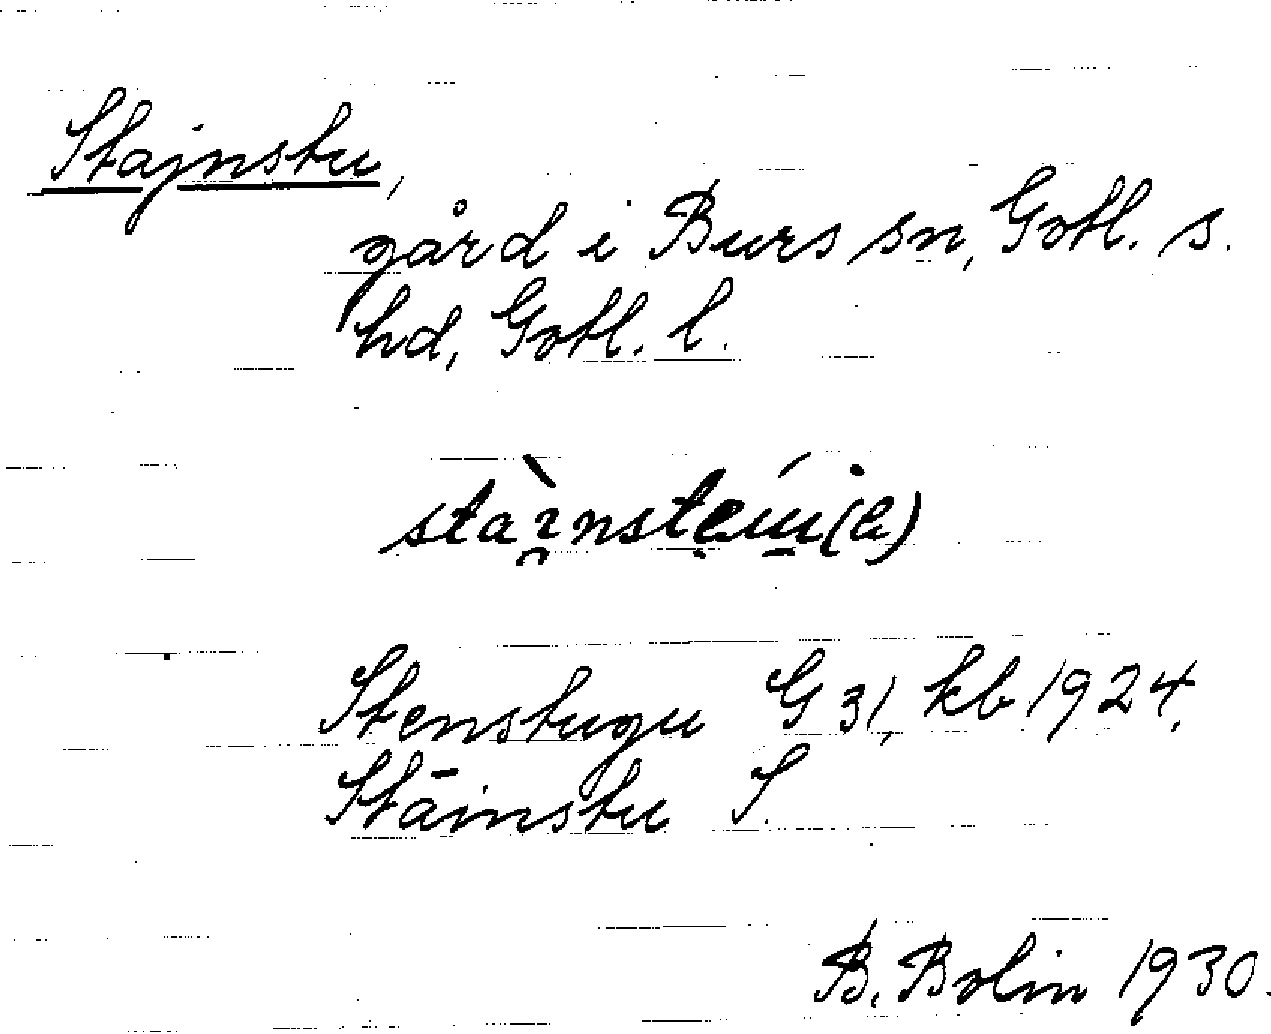 Stajnstu,
gård i Burs sn, Gotl. s.
hd, Gotl. l.
Stenstugu G 31, kb 1924.
Stāinstu S.
B. Bolin 1930.